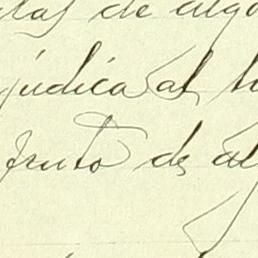 de algo
judica al
fruto de al